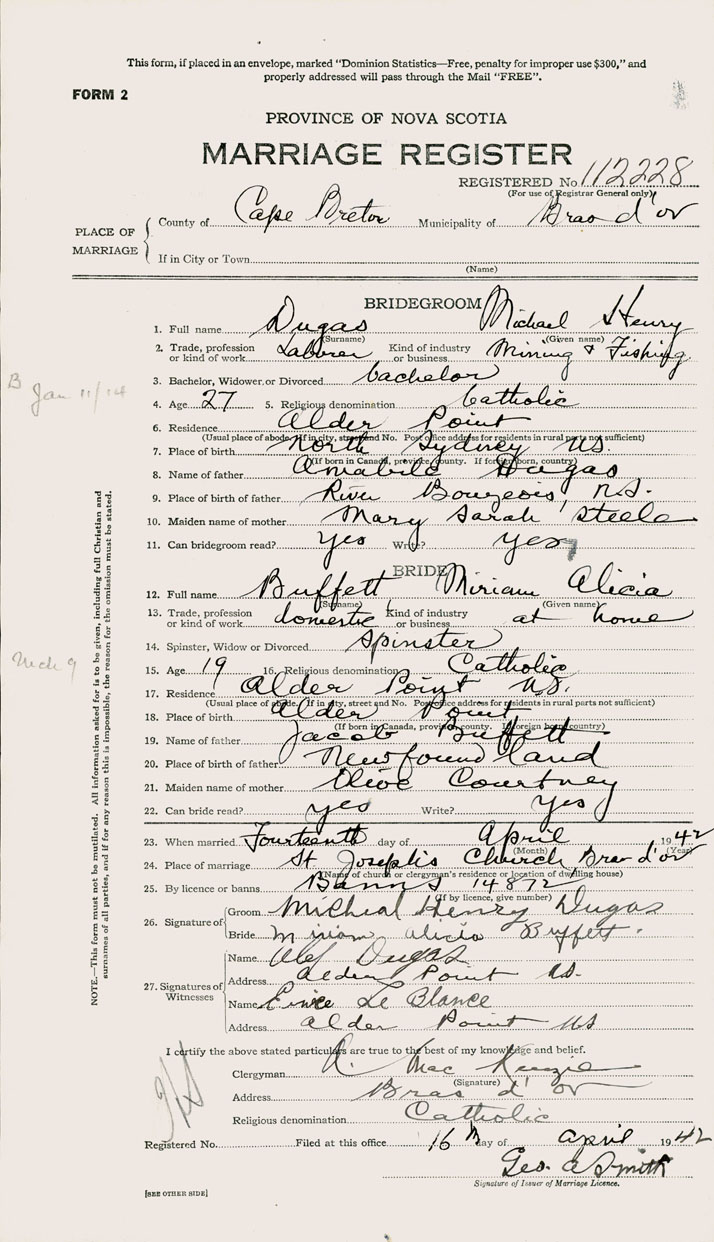 This form, if placed in an envelope, marked "Dominion Statistics—Free, penalty for improper use $300," and
properly addressed will pass through the Mail "FREE".
FORM 2
PROVINCE OF NOVA SCOTIA
MARRIAGE REGISTER
REGISTERED No. 112228
(For use of Registrar General only)
PLACE OF MARRIAGE
County of Cape Breton Municipality of Bras d'or
If in City or Town
(Name)
BRIDEGROOM
1. Full name Dugas Michael Henry
(Surname) (Given name)
2. Trade, profession or kind of work Laborer Kind of industry or business Mining & Fishing
3. Bachelor, Widower or Divorced bachelor
B Jan 11/14
4. Age 27 5. Religious denomination Catholic
6. Residence Alder Point
(Usual place of abode. If in city, street and No. Post office address for residents in rural parts not sufficient)
7. Place of birth North Sydney NS.
(If born in Canada, province, county. If foreign born, country)
8. Name of father Amabile Dugas
9. Place of birth of father River Bourgeois, N.S.
10. Maiden name of mother Mary Sarah Steele
11. Can bridegroom read? yes Write? yes
BRIDE
12. Full name Buffett Miriam Alicia
(Surname) (Given name)
13. Trade, profession or kind of work domestic Kind of industry or business at home
14. Spinster, Widow or Divorced Spinster
15. Age 19 16. Religious denomination Catholic
17. Residence Alder Point N.S.
(Usual place of abode. If in city, street and No. Post office address for residents in rural parts not sufficient)
18. Place of birth Alder Point
(If born in Canada, province, county. If foreign born, country)
19. Name of father Jacob Buffett
20. Place of birth of father Newfoundland
21. Maiden name of mother Olive Courtney
22. Can bride read? yes Write? yes
23. When married Fourteenth day of April 1942
(Month) (Year)
24. Place of marriage St Joseph's Church Bras d'or
(Name of church or clergyman's residence or location of dwelling house)
25. By licence or banns Banns 14872
(If by licence, give number)
26. Signature of
Groom Micheal Henry Dugas
Bride Miriam Alicia Buffett.
27. Signatures of Witnesses
Name Alef Dugas
Address Alder Point NS.
Name Le Blance
Address Alder Point NS
I certify the above stated particulars are true to the best of my knowledge and belief.
Clergyman R. Mac Kenzie
(Signature)
Address Bras d'or
Religious denomination Catholic
Registered No. Filed at this office 16th day of April 1942
Geo. A Smith
Signature of Issuer of Marriage Licence.
[SEE OTHER SIDE]
NOTE.—This form must not be mutilated. All information asked for is to be given, including full Christian and
surnames of all parties, and if for any reason this is impossible, the reason for the omission must be stated.